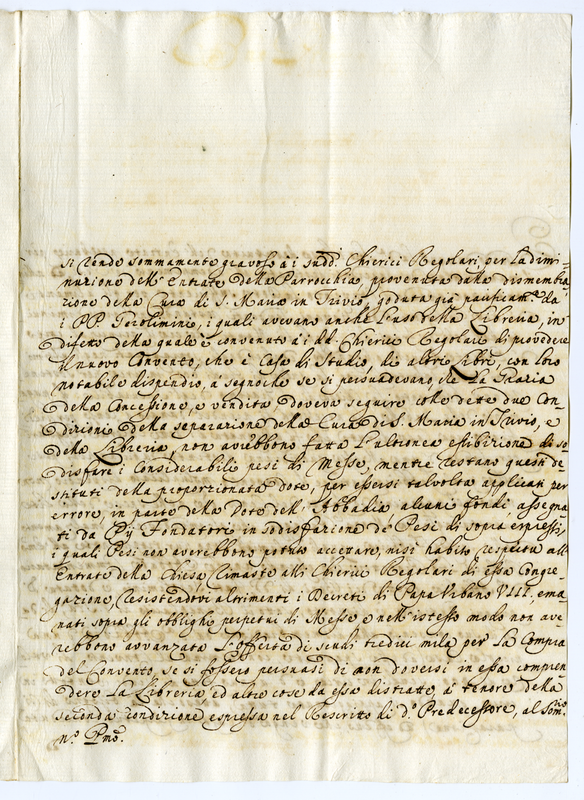 si rende sommamente gravoso à i sudd.i Chierici Regolari per la dimi-
nuzione dell'Entrate della Parrocchia, provenuta dalla dismembra-
zione della Cura di S. Maria in Trivio, goduta già pacificam.te da
i PP. Gerolimini, i quali avevano anche l'uso della Libreria, in
difetto della quale è convenuto à i dd. Chierici Regolari di provedere
il nuovo Convento, che è Casa di Studio, di altri Libri, con loro
notabile dispendio, a segno che se si persuadevano, che La Grazia
della Concessione, e vendita doveva seguire colle dette due Con-
dizioni della separazione della Cura di S. Maria in Trivio, e
della Libreria, non avrebbono fatta l'ultronea esibizione di so-
disfare i Considerabili pesi di Messe, mentre restano questi de-
stituti della proporzionata dote, per essersi talvolta applicati per
errore, in parte della Dote dell'Abbadia alcuni fondi, assegna-
ti da Pij Fondatori in sodisfazione de Pesi di sopra espressi,
i quali Pesi non averebbono potuto accettare, nisi habito respectu all'
Entrate della Chiesa, rimaste alli Chierici Regolari di essa Congre-
gazione, resistendovi altrimenti i Decreti di Papa Urbano VIII. ema-
nati sopra gli obblighi perpetui di Messe, e nell'istesso modo non ave-
rebbono avvanzata L'offerta di scudi tredici mila per La Compra
del Convento, se si fossero persuasi di non doversi in essa compren-
dere La Libreria, ed altre cose da essa distratte, à tenore della
seconda condizione espressa nel Rescritto di d.o Predecessore, al Som.
n.o Pmo.